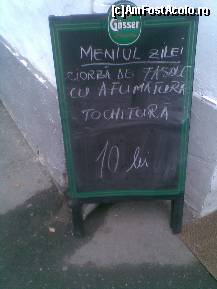 (c)AmFostAcolo.ro
Gösser
MENIUL ZILEI
CIORBA DE FASOLE
CU AFUMATURA
TOCHITURA
10 lei